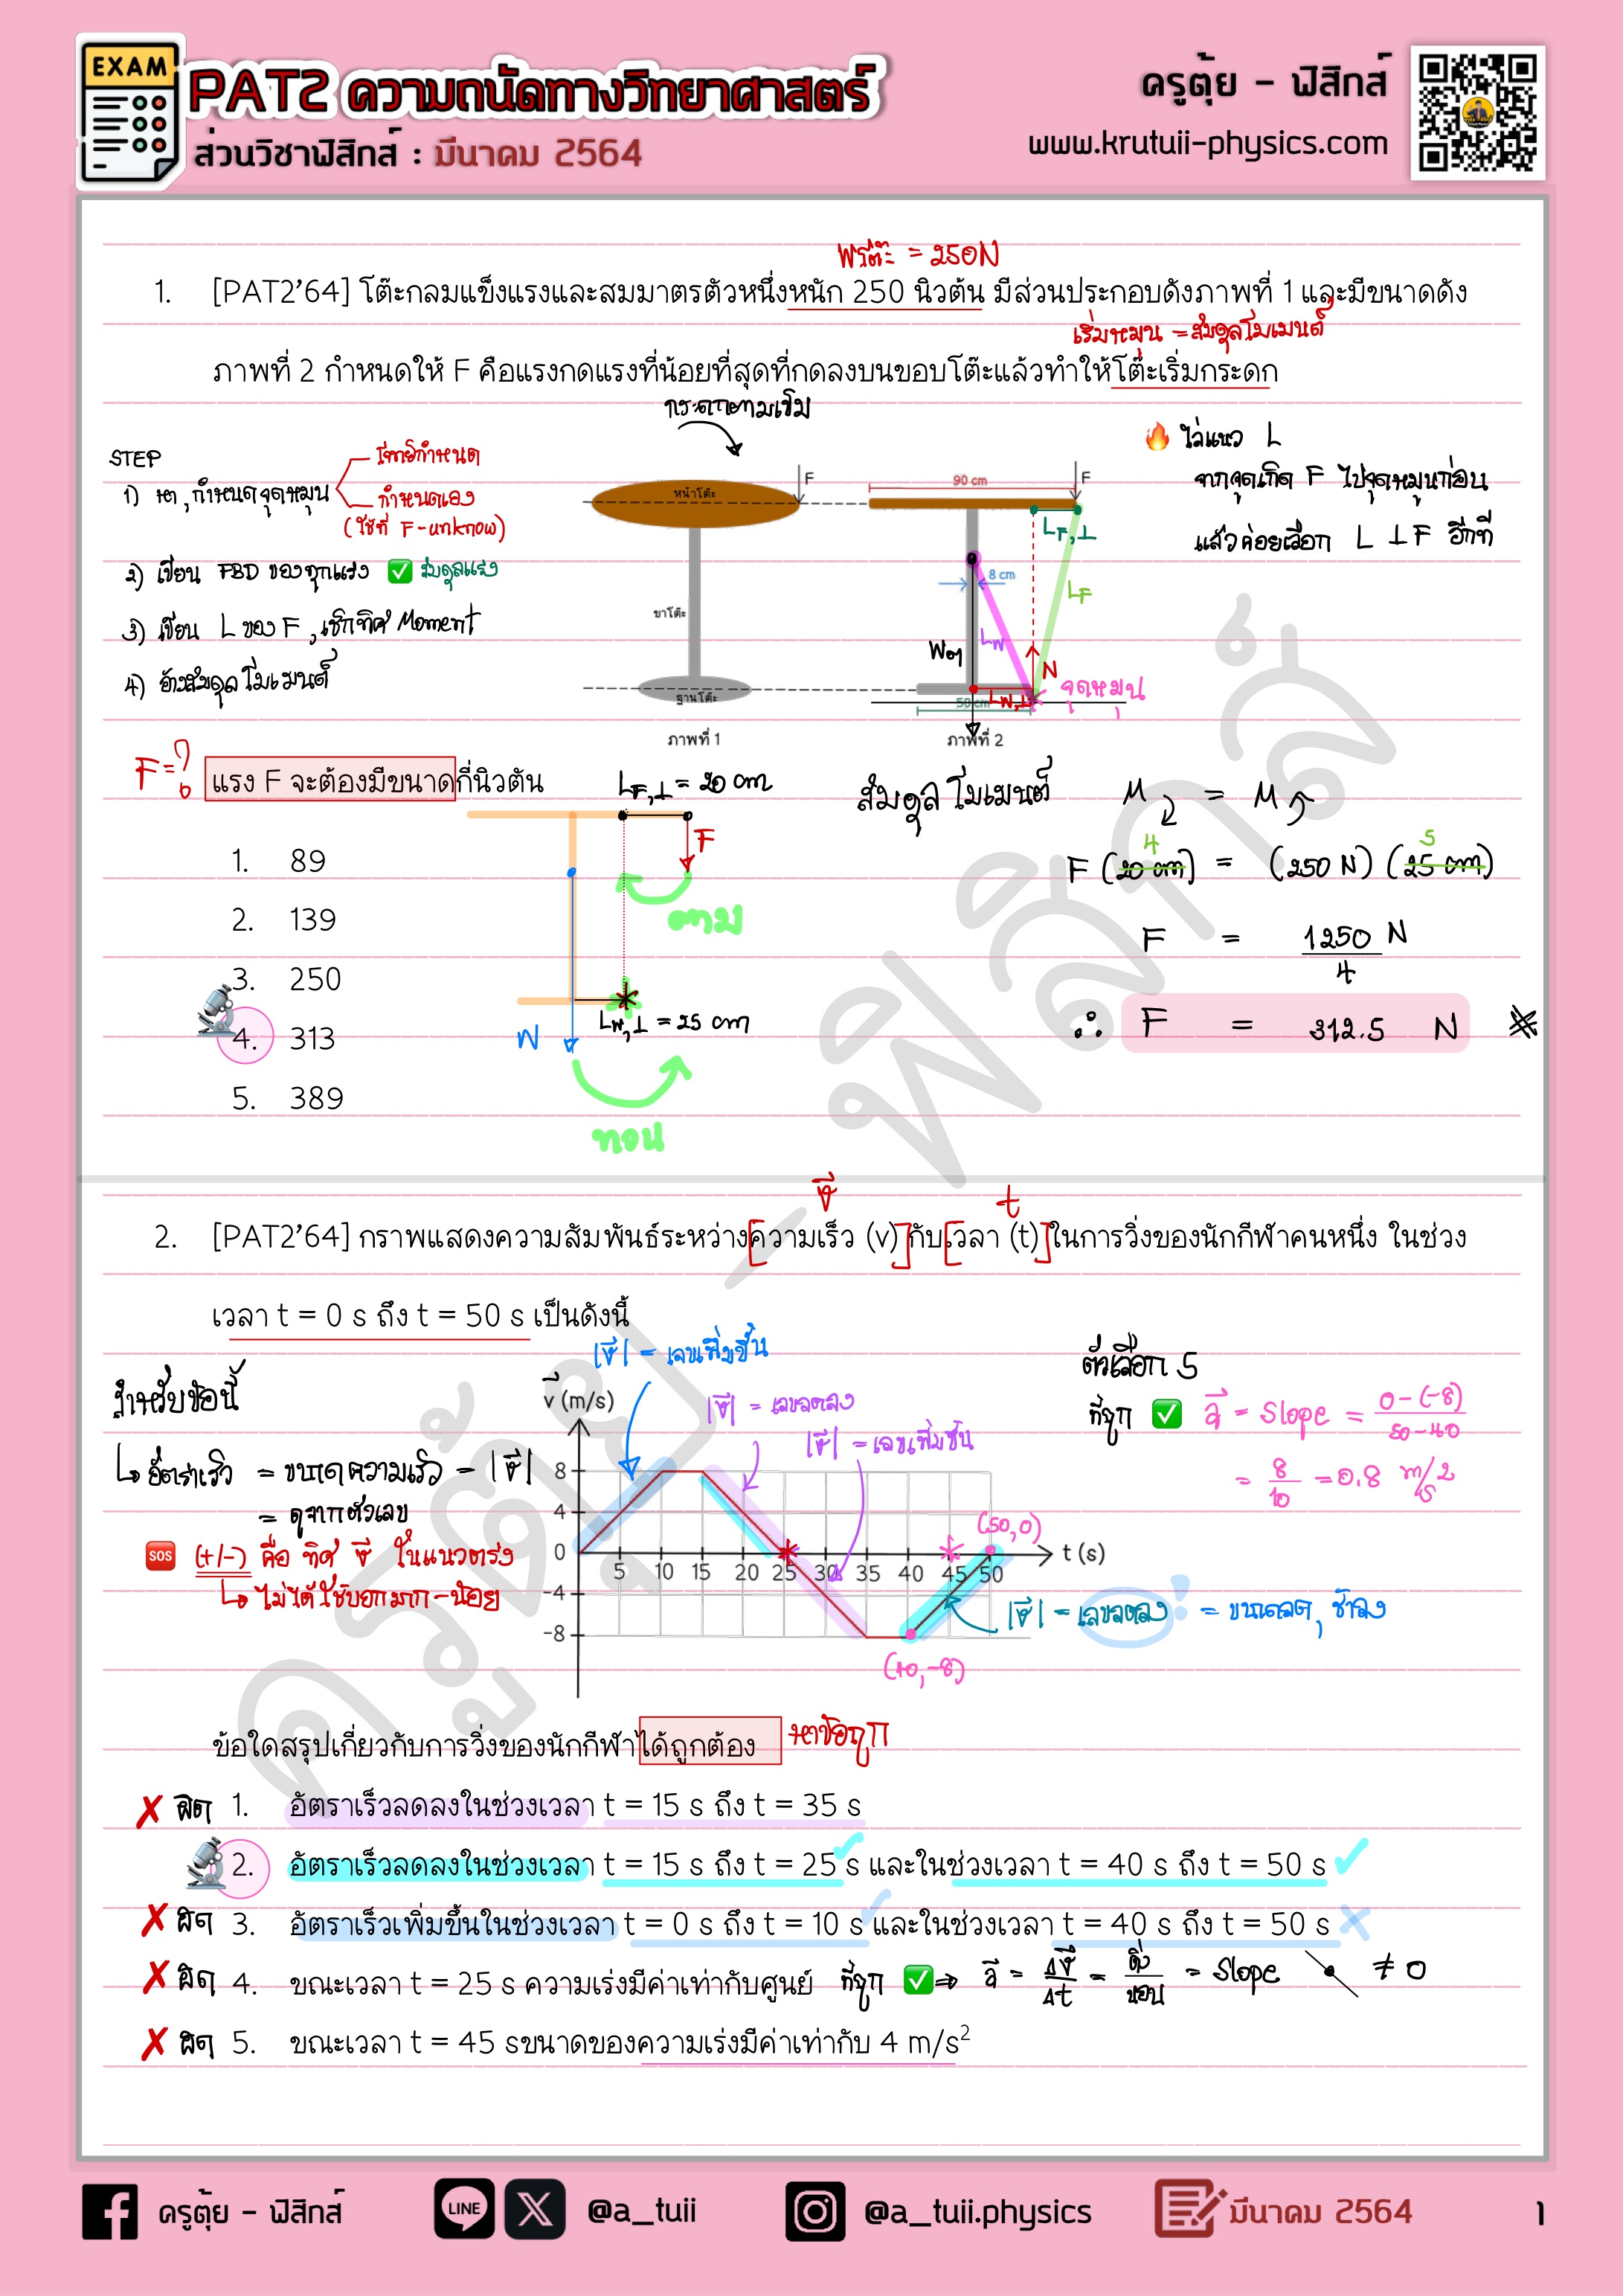 EXAM
PAT2 ความถนัดทางวิทยาศาสตร์
ส่วนวิชาฟิสิกส์ : มีนาคม 2564
ครูตุ้ย - ฟิสิกส์
www.krutuii-physics.com
พรโต๊ะ = 250N
1. [PAT2'64] โต๊ะกลมแข็งแรงและสมมาตรตัวหนึ่งหนัก 250 นิวตัน มีส่วนประกอบดังภาพที่ 1 และมีขนาดดัง
เริ่มหมุน = สมดุลโมเมนต์
ภาพที่ 2 กำหนดให้ F คือแรงกดแรงที่น้อยที่สุดที่กดลงบนขอบโต๊ะแล้วทำให้โต๊ะเริ่มกระดก
กระดกตามเข็ม
STEP
1) หา, กำหนดจุดหมุน
โจทย์กำหนด
กำหนดเอง
(ใช้ที่ F-unknow)
2) เขียน FBD ของทุกแรง ✅ สมดุลแรง
3) เขียน L ของ F, เช็กทิศ Moment
4) อ้างสมดุลโมเมนต์
หน้าโต๊ะ
F
ขาโต๊ะ
ฐานโต๊ะ
ภาพที่ 1
90 cm
F
LF,⊥
8 cm
LF
LW
N
จุดหมุน
LW,⊥
50 cm
ภาพที่ 2
🔥 ไล่แนว L
จากจุดเกิด F ไปจุดหมุนก่อน
แล้วค่อยเลือก L ⊥ F อีกที
F = ?
แรง F จะต้องมีขนาดกี่นิวตัน
1. 89
2. 139
3. 250
4. 313
5. 389
LF,⊥ = 20 cm
F
ตาม
LW,⊥ = 25 cm
W
ทวน
สมดุลโมเมนต์ M = M
4 5
F (20 cm) = (250 N) (25 cm)
F = 1250 N
4
∴ F = 312.5 N
v⃗ t
2. [PAT2'64] กราฟแสดงความสัมพันธ์ระหว่าง[ความเร็ว (v)]กับ[เวลา (t)]ในการวิ่งของนักกีฬาคนหนึ่ง ในช่วง
เวลา t = 0 s ถึง t = 50 s เป็นดังนี้
|v⃗| = เลขเพิ่มขึ้น
|v⃗| = เลขลดลง
|v⃗| = เลขเพิ่มขึ้น
สำหรับข้อนี้
↳ อัตราเร็ว = ขนาดความเร็ว = |v⃗|
= ดูจากตัวเลข
SOS (+/-) คือ ทิศ v⃗ ในแนวตรง
↳ ไม่ได้ใช้บอกมาก-น้อย
v⃗ (m/s)
8
4
0
-4
-8
5 10 15 20 25 30 35 40 45 50
t (s)
(50,0)
(40,-8)
|v⃗| = เลขลดลง! = ขนาดลด, ช้าลง
ตัวเลือก 5
ที่ถูก ✅ a⃗ = Slope = 0-(-8)
50-40
= 8/10 = 0.8 m/s2
ข้อใดสรุปเกี่ยวกับการวิ่งของนักกีฬาได้ถูกต้อง หาข้อถูก
✗ ผิด 1. อัตราเร็วลดลงในช่วงเวลา t = 15 s ถึง t = 35 s
2. อัตราเร็วลดลงในช่วงเวลา t = 15 s ถึง t = 25 s และในช่วงเวลา t = 40 s ถึง t = 50 s
✗ ผิด 3. อัตราเร็วเพิ่มขึ้นในช่วงเวลา t = 0 s ถึง t = 10 s และในช่วงเวลา t = 40 s ถึง t = 50 s
✗ ผิด 4. ขณะเวลา t = 25 s ความเร่งมีค่าเท่ากับศูนย์ ที่ถูก ✅ ⇒ a⃗ = Δv⃗/Δt = ดิ่ง/นอน = Slope ≠ 0
✗ ผิด 5. ขณะเวลา t = 45 sขนาดของความเร่งมีค่าเท่ากับ 4 m/s²
ครูตุ้ย - ฟิสิกส์
ครูตุ้ย - ฟิสิกส์
LINE
@a_tuii
@a_tuii.physics
มีนาคม 2564
1